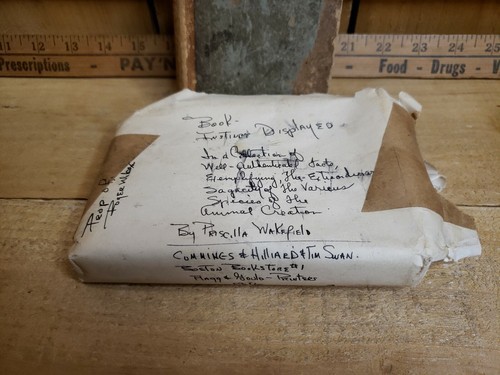 11 12 13 14 15 16 17 21 22 23 24 25
Prescriptions - PAY'N
- Food - Drugs -
Book-
Instinct Displayed
In a Collection of
Well-Authenticated Facts,
Exemplifying The Extraordinary
Sagacity of The Various
Species of The
Animal Creation.
By Priscilla Wakefield
Cummings & Hilliard & Tim Swan.
Boston Bookstore #1
Printers
Prop of